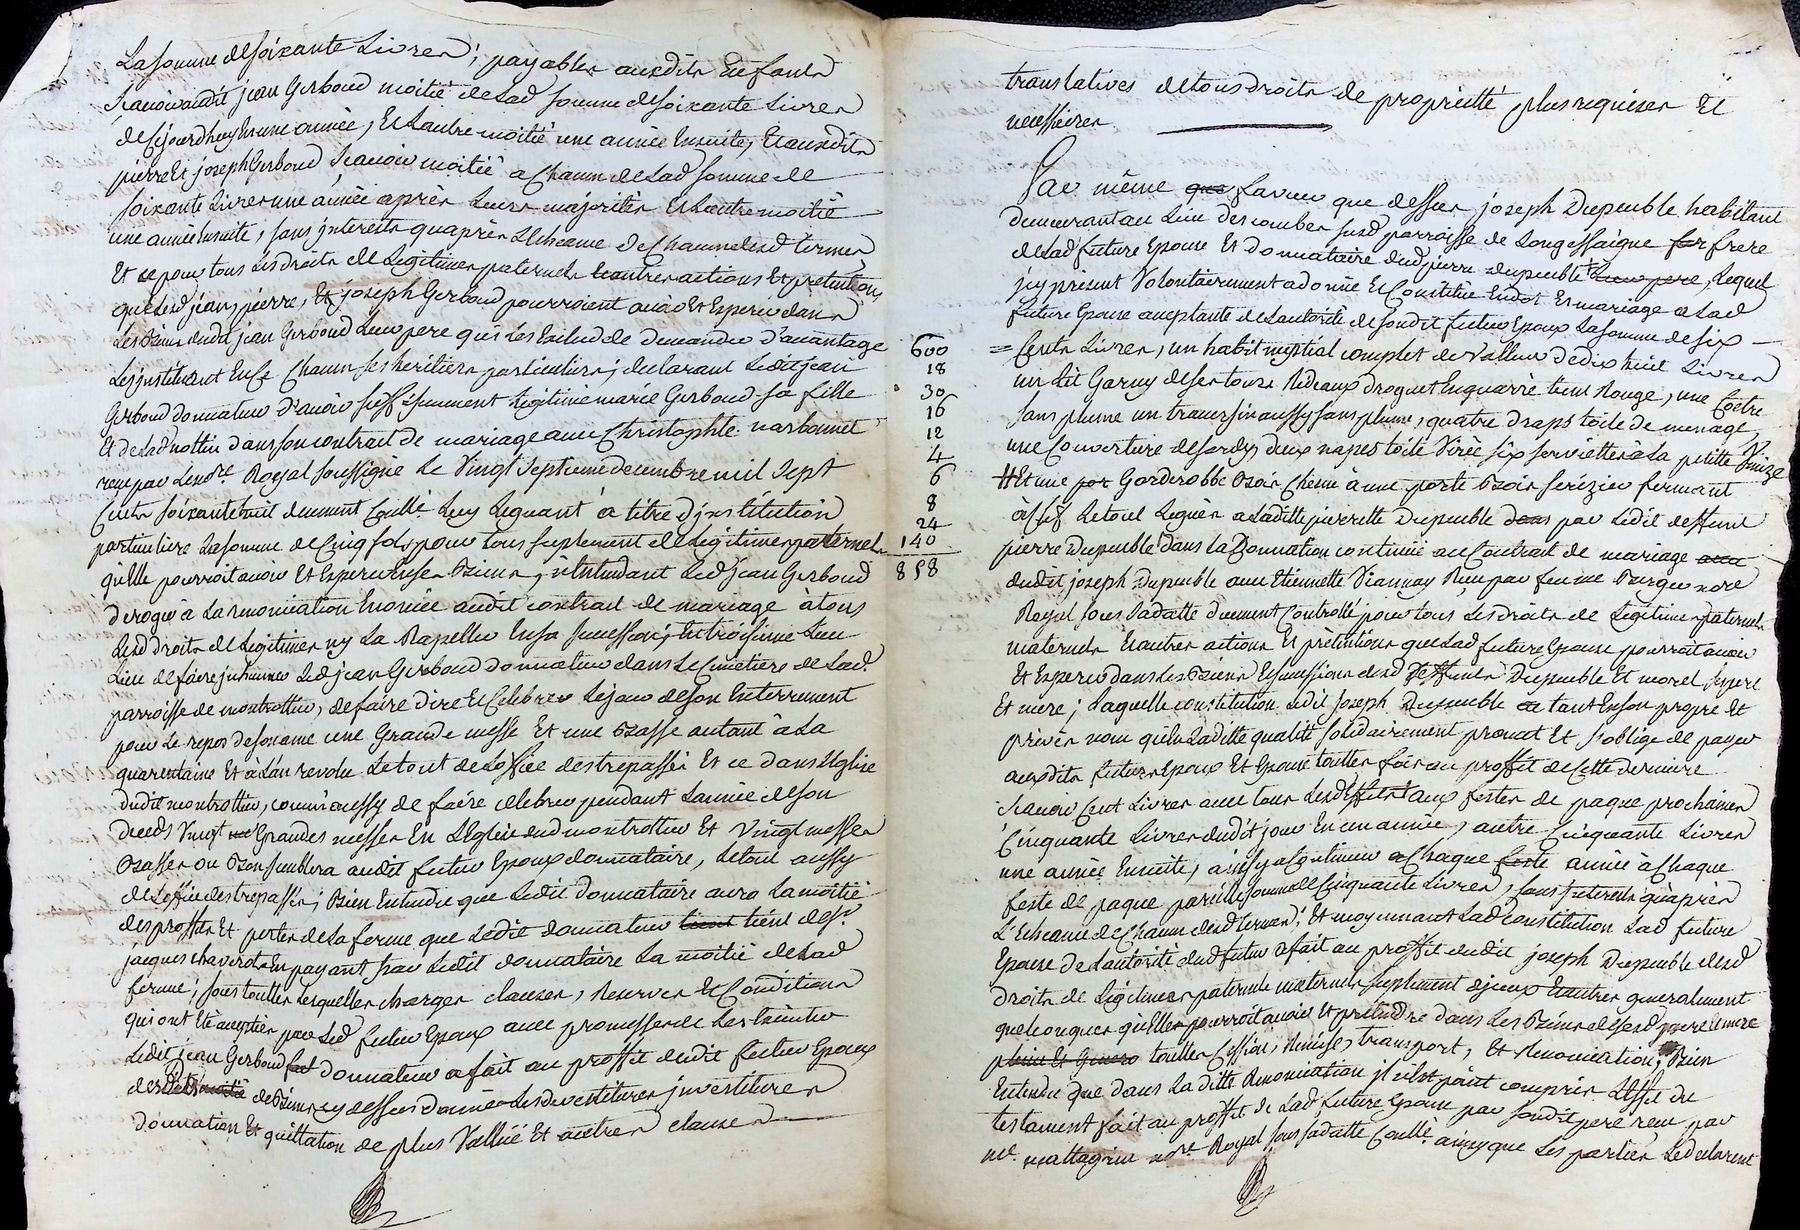 La somme de soixante Livres, payables ausdits Enfants
scavoir audit jean Gerboud moitié de lad somme de soixante Livres
de cejourdhuy en une année, Et Lautre moitié une année Ensuite, Et ausdits
pierre Et joseph Gerboud scavoir moitié a Chacun de Lad somme de
soixante Livres une année après Leurs majorités Et Lautre moitié
une année Ensuite, sans jnterests qu'après L'Echeance de Chacun desd termes
Et ce pour tous Les droits de Legitimes paternels Et autres actions Et pretentions
que lesd jean, pierre, Et joseph Gerboud pourroient avoir Et Esperer dans
Les Biens dudit jean Gerboud Leur pere qui Les Exclud de demander d'avantage
Les jnstituant En ce Chacun ses heritiers particuliers; declarant Ledit jean
Gerboud donnateur d'avoir suffisamment Legitimé marie Gerboud sa fille
Et de Lad nottin dans son contrat de mariage avec Christophle narbonnet
reçu par Le nore Royal soussigné Le Vingt septieme decembre mil sept
Cents soixante huit deument Coullé. Luy Leguant à titre d'jnstitution
particuliere La somme de Cinq sols pour tous suplement de Legitimes paternels
qu'elle pourroit avoir Et Esperer En ses Biens, n'Entendant Led jean Gerboud
deroger à La renonciation Enoncée audit contrat de mariage à tous
Lesd droits de Legitimes ny La Rapeller En sa succession; En troisieme Lieu
Lieu de faire jnhumer Led jean Gerboud donnateur dans Le Cimetiere de Lad.
parroisse de montrottier, de faire dire Et Celebrer Le jour de son Enterrement
pour Le repos de son ame une Grande messe Et une Basse autant à La
quarentaine Et à L'an revolu Le tout de L'office des trepassés Et ce dans L'Eglise
dudit montrottier, comm'aussy de faire celebrer pendant L'année de son
deceds Vingt Grandes messes En L'Eglise dud montrottier Et Vingt messes
Basses ou Bon semblera audit futur Epoux donnataire, Le tout aussy
de L'office des trepassés; Bien Entendu que Ledit donnataire aura La moitié
des proffits Et pertes de La ferme que Ledit donnateur tient tient de Sr
jacques chaverot En payant par Ledit donnataire La moitié de Lad
ferme; sous touttes Lesquelles charges clauses, Reserves Et Conditions
qui ont Eté acceptées par Led futur Epoux avec promesses de Les Executer
Ledit jean Gerboud donnateur a fait au proffit dudit futur Epoux
des Biens cy dessus donnés Les devestitures jnvestitures
donnation Et quittation de plus Vallüe Et autres clauses
translatives de tous droits de proprietté plus requises Et
necessaires
Par même faveur que dessus joseph Dupeuble habitant
demeurant au Lieu des combes susd parroisse de Longessaigne frere
de Lad future Epouse Et donnataire dud pierre dupeuble Leur pere, Lequel
jcy présent Volontairement a donné Et Constitué En dot Et mariage a Lad
future Epouse acceptante de L'autorité de sondit futur Epoux La somme de six
600 = Cents Livres, un habit nuptial complet de Valleur de dix huit Livres
18
30 un Lit Garny de ses tours Rideaux droguet Enquarré teint Rouge, une Coetre
16 sans plume un traversin aussy sans plume, quatre draps toile de menage,
12
4 une Couverture de sardy, deux napes toile Virée six serviettes à La petitte Venize
6 # Et une Garderobbe Bois Chene à une porte Bois serizier fermant
8
24 à clef Le tout Legués a Laditte pierrette Dupeuble par Ledit deffunt
140 pierre Dupeuble dans La Donnation contenüe au Contrat de mariage
858 dudit joseph Dupeuble avec Etiennette Viannay Reçu par feu me Burger nore
Royal sous sa datte deument Controllé pour tous Les droits de Legitimes paternels
maternels Et autres actions Et pretentions que Lad future Epouse pourroit avoir
Et Esperer dans Les Biens Et successions desd Deffunts Dupeuble Et morel ses pere
Et mere; Laquelle constitution Ledit joseph Dupeuble tant En son propre Et
privés nom qu'En Laditte qualité solidairement promet Et s'oblige de payer
ausdits futurs Epoux Et Epouse touttes fois au proffit de Cette derniere
scavoir Cent Livres avec tous Lesd Effets aux festes de paque prochaines
Cinquante Livres dudit jour En un année, autre Cinquante Livres
une année Ensuite, ainsy a Continuer a Chaque année à Chaque
feste de paque pareille somme de Cinquante Livres, sans jnterests qu'après
L'Echeance de Chacun desd termes; Et moyennant Lad Constitution Lad future
Epouse de L'autorité dud futur a fait au proffit dudit joseph Dupeuble desd
droits de Legitimes paternels maternels supplement d'jceux Et autres generalement
quelconques qu'elle pourroit avoir Et pretendre dans Les Biens de sesd pere Et mere
touttes Cession, Remise, transport, Et Renonciation, Bien
Entendu que dans La ditte Renonciation jl n'est point compris L'Effet du
testament fait au proffit de Lad future Epouse par sondit pere reçu par
me. mattagrin nore Royal sous sa datte Coullé ainsy que Les parties Le declarent